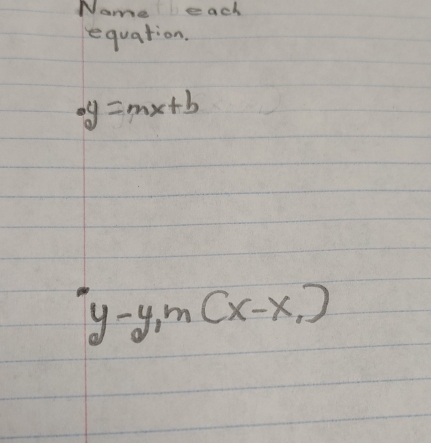 Name each
equation.
•y=mx+b
•y-y₁m(x-x₁)